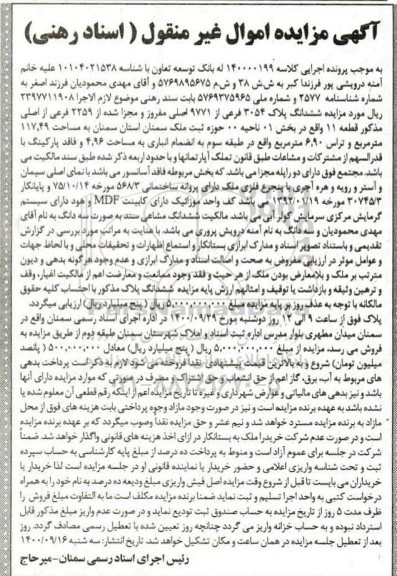 آگهی مزایده اموال غیر منقول ( اسناد رهنی)
به موجب پرونده اجرایی کلاسه ۱۴۰۰۰۰۱۹۹ له بانک توسعه تعاون با شناسه ۱۰۱۰۴۰۲۱۵۳۸ علیه خانم
آمنه درویشی پور فرزند اکبر به ش‌ش ۳۸ و ش‌م ۵۷۶۹۸۹۵۶۷۵ و آقای مهدی محمودیان فرزند اصغر به
شماره شناسنامه ۲۵۷۷ و شماره ملی ۵۷۶۹۳۷۵۹۶۵ بابت سند رهنی موضوع لازم الاجرا ۲۳۹۷۷۱۱۹۰۸
ریال مورد مزایده ششدانگ پلاک ۳۰۵۴ فرعی از ۹۷۷۱ اصلی مفروز و مجزا شده از ۲۲۵۹ فرعی از اصلی
مذکور قطعه ۱۱ واقع در بخش ۰۱ ناحیه ۰۰ حوزه ثبت ملک سمنان استان سمنان به مساحت ۱۱۷,۴۹
مترمربع و تراس ۶,۹۰ مترمربع واقع در طبقه سوم به انضمام انباری به مساحت ۴,۹۶ و فاقد پارکینگ با
قدرالسهم از مشترکات و مشاعات طبق قانون تملک آپارتمانها و با حدود اربعه ذکر شده طبق سند مالکیت می
باشد. مجتمع فوق دارای دو راپله مجزا می باشد، که بخش مربوطه فاقد آسانسور می باشد با نمای اصلی سیمان
و آستر و رویه و هره آجری با پنجره فلزی ملک دارای پروانه ساختمانی ۵۶۸/۳ مورخه ۷۵/۱۰/۱۴ و پایانکار
۳۰۷۴۵/۳ مورخه می باشد کف واحد موزائیک دارای کابینت MDF و خود دارای سیستم
گرمایش مرکزی سرمایش کولر آبی می باشد. مالکیت ششدانگ مشاعی سند به صورت سه دانگ به نام آقای
مهدی محمودیان و سه دانگ به نام آمنه درویش پروری می باشد، با عنایت به مراتب مورد بررسی در گزارش
تقدیمی و باستناد تصویر اسناد و مدارک ابرازی بستانکار و استماع اظهارات و تحقیقات محلی و با لحاظ جهات
و عوامل موثر در ارزیابی مفروض به صحت و اصالت اسناد و مدارک ابرازی و عدم وجود هرگونه بدهی و دیون
مترتب بر ملک و بلامعارض بودن ملک از هر حیث و فقد وجود ممانعت و معارضت اعم از مالکیت اغیار، وقف
و ترهین وثیقه و بازداشت یا توقیف و امثالهم ارزش پایه مزایده ششدانگ پلاک مذکور با احتساب کلیه حقوق
مالکانه با توجه به عذف روز بر پایه مزایده مبلغ ۵۰۰۰۰۰۰۰۰۰ ریال (پنج میلیارد ریال) ارزیابی میگردد.
پلاک فوق از ساعت ۹ الی ۱۲ روز دوشنبه مورخ ۱۴۰۰/۰۹/۲۲ در اداره اجرای اسناد رسمی سمنان واقع در
سمنان میدان مطهری بلوار مدرس اداره ثبت اسناد و املاک شهرستان سمنان طبقه دوم از طریق مزایده به
فروش می رسد، مزایده از مبلغ ۵۰۰۰۰۰۰۰۰۰ ریال ( پنج میلیارد ریال) معادل ۵۰۰۰۰۰۰۰۰ ( پانصد
میلیون تومان) شروع و به بالاترین قیمت پیشنهادی نقدا فروخته می شود لازم به ذکر است پرداخت بدهی
های مربوط به آب، برق، گاز اعم از حق انشعاب و یا حق اشتراک و مصرف در صورتی که موارد مزایده دارای آنها
باشد و نیز بدهی های مالیاتی و عوارض شهرداری و غیره تا تاریخ مزایده اعم از اینکه رقم قطعی آن معلوم شده یا
نشده باشد به عهده برنده مزایده است و نیز در صورت وجود مازاد وجوه پرداختی بابت هزینه های فوق از محل
مازاد به برنده مزایده مسترد خواهد شد و نیم عشر و حق مزایده نقدا وصول میگردد که بر عهده برنده مزایده
است و در صورت عدم شرکت خریدار ملک به بستانکار در ازای اخذ هزینه های قانونی واگذار خواهد شد. ضمناً
شرکت در جلسه برای عموم آزاد است و منوط به پرداخت ده درصد از مبلغ پایه کارشناسی به حساب سپرده
ثبت و تحت شناسه واریزی اعلامی و حضور خریدار یا نماینده قانونی او در جلسه مزایده است لذا خریدار یا
خریداران می بایست تا قبل از شروع وقت مزایده اصل فیش واریزی مبلغ ودیعه ده درصد به نام خود را به همراه
درخواست کتبی به واحد اجرا تسلیم و ثبت نماید ضمنا برنده مزایده مکلف است ما به التفاوت مبلغ فروش را
ظرف مدت ۵ روز از تاریخ مزایده به حساب صندوق ثبت تودیع نماید و در صورت عدم واریز مبلغ مذکور قابل
استرداد نبوده و به حساب خزانه واریز می گردد چنانچه روز تعیین شده با تعطیل رسمی مصادف گردد. روز
بعد از تعطیل جلسه مزایده در همان ساعت و مکان تشکیل خواهد شد. تاریخ انتشار: سه شنبه ۱۴۰۰/۰۹/۱۶
رئیس اجرای اسناد رسمی سمنان-میرحاج